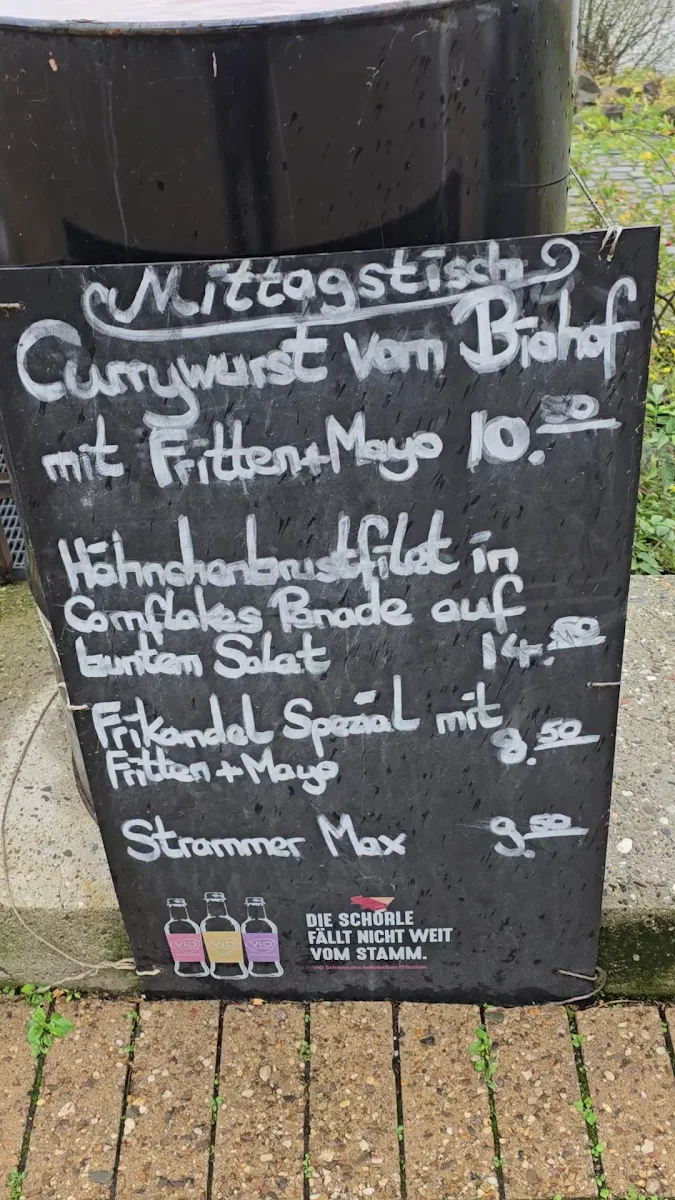 Mittagstisch
Currywurst vom Biohof
mit Fritten + Mayo 10.50
Hähnchenbrustfilet in
Cornflakes Panade auf
buntem Salat 14.50
Frikandel Spezial mit
Fritten + Mayo 8.50
Strammer Max 9.50
ViO ViO ViO
DIE SCHORLE
FÄLLT NICHT WEIT
VOM STAMM.